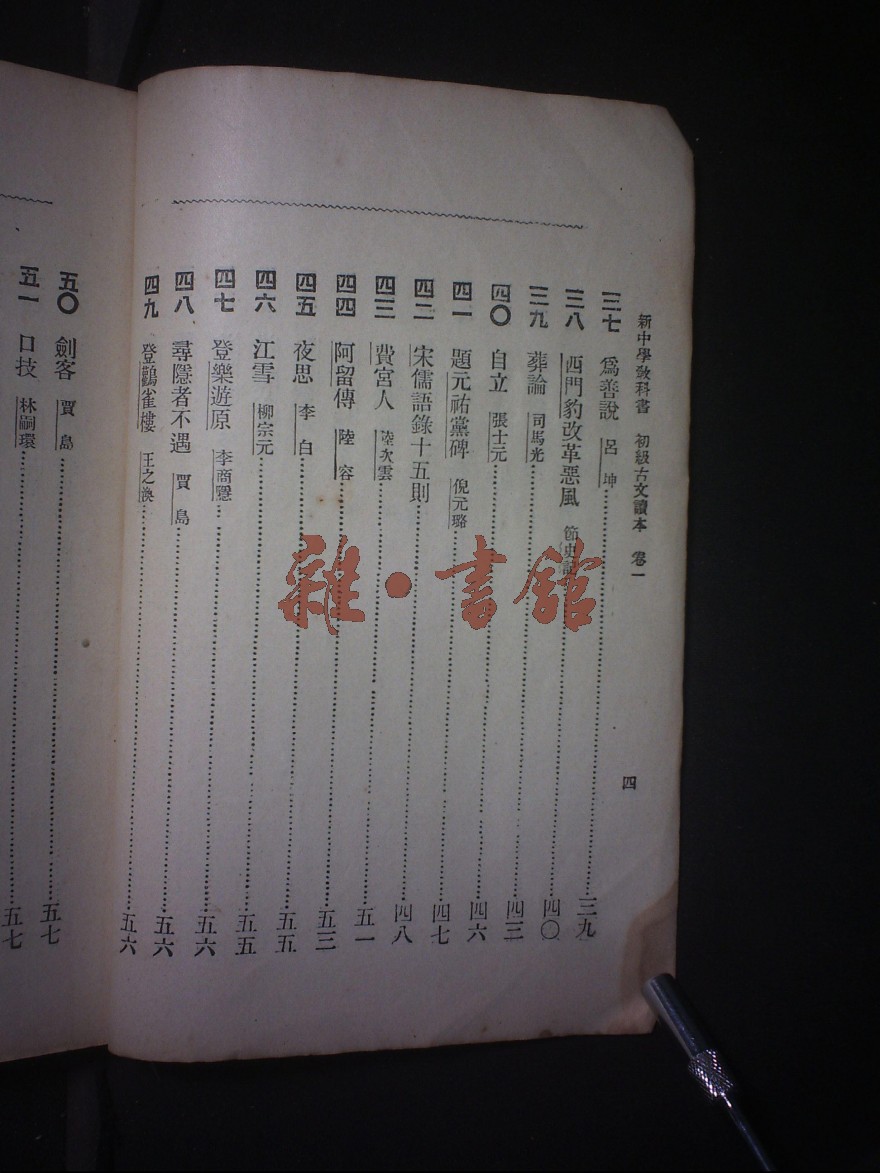 新中學教科書 初級古文讀本 卷一
四
三七 爲善說 呂坤 三九
三八 西門豹改革惡風 節史記 四〇
三九 葬論 司馬光 四三
四〇 自立 張士元 四六
四一 題元祐黨碑 倪元璐 四七
四二 宋儒語錄十五則 四八
四三 費宮人 陸次雲 五一
四四 阿留傳 陸容 五三
四五 夜思 李白 五五
四六 江雪 柳宗元 五五
四七 登樂遊原 李商隱 五六
四八 尋隱者不遇 賈島 五六
四九 登鸛雀樓 王之渙 五六
五〇 劍客 賈島 五七
五一 口技 林嗣環 五七
雜·書館